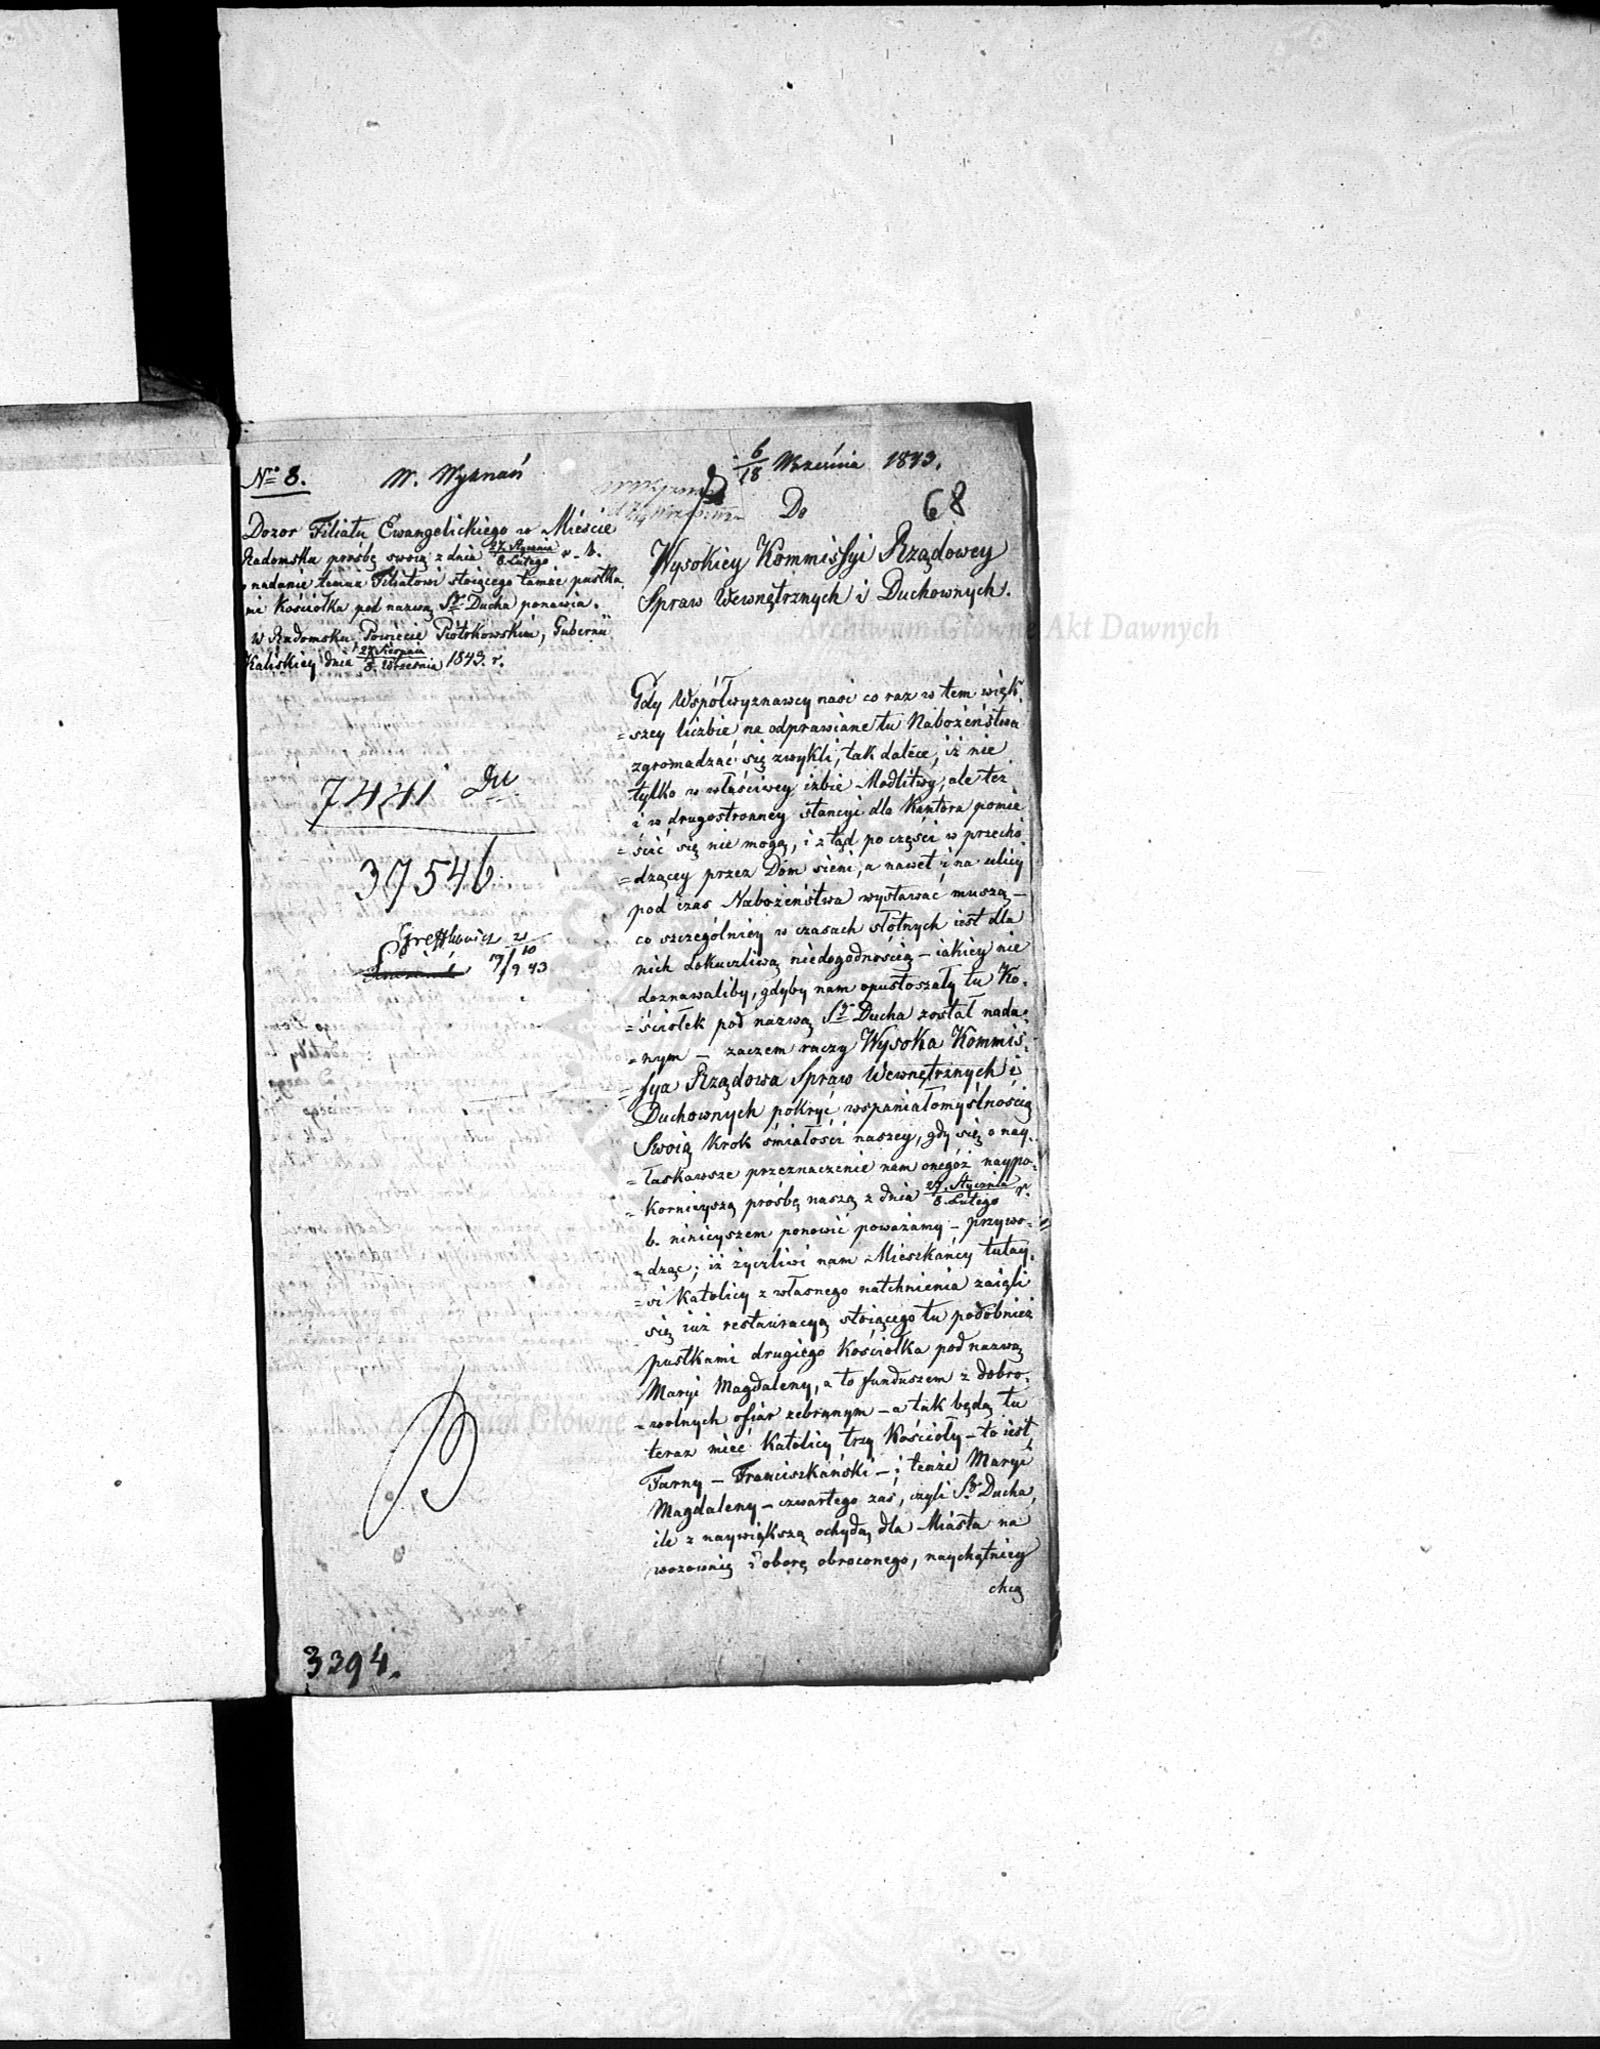 Nro 8.
W. Wyznań
6/18 Września 1843.
68
Dozor Filiału Ewangelickiego w Mieście
Radomsku prośbę swoią z dnia 27. Stycznia/8. Lutego r. b.
o nadanie temuż Filiałowi stoiącego tamże pustka
mi Kościołka pod nazwą Sgo Ducha ponawia.
w Radomsku, Powiecie Piotrkowskim, Gubernii
Kaliskiey dnia 27. Sierpnia/8. Września 1843. r.
7441
37546.
19/9 43
3394.
Do
Wysokiey Kommissyi Rządowey
Spraw Wewnętrznych i Duchownych.
Gdy Współwyznawcy nasi co raz w tem więk=
=szey liczbie na odprawiane tu Nabożeństwa
zgromadzać się zwykli, tak dalece, iż nie
tylko w właściwey izbie Modlitwy, ale też
i w drugostronney stancyi dla Kantora pomie
=ścić się nie mogą, i ztąd po części w przecho
=dzącey przez Dom sieni, a nawet i na ulicy
pod czas Nabożeństwa wystawać muszą –
co szczególniey w czasach słotnych iest dla
nich dokuczliwą niedogodnością – iakiey nie
doznawaliby, gdyby nam opustoszały tu Ko=
=ściołek pod nazwą Sgo Ducha został nada=
=nym – zaczem raczy Wysoka Kommis=
=sya Rządowa Spraw Wewnętrznych i
Duchownych pokryć wspaniałomyślnością
Swoią krok śmiałości naszey, gdy się o nay=
=łaskawsze przeznaczenie nam onegóż naypo=
=kornieyszą prośbę naszą z dnia 27. Stycznia/8. Lutego r.
b. ninieyszem ponowić poważamy – przywo=
=dząc; iż życzliwi nam Mieszkańcy tutay=
=si Katolicy z własnego natchnienia zaięli
się iuż restauracyą stoiącego tu podobnież
pustkami drugiego Kościołka pod nazwą
Maryi Magdaleny, a to funduszem z dobro=
=wolnych ofiar zebranym – a tak będą tu
teraz mieć Katolicy trzy Kościoły – to iest,
Farny – Franciszkański – i tenże Maryi
Magdaleny – czwartego zaś, czyli Sgo Ducha,
ile z naywiększą ochydą dla Miasta na
wozownię i oborę obroconego, naychętniey
chcą
Archiwum Główne Akt Dawnych
Archiwum Główne